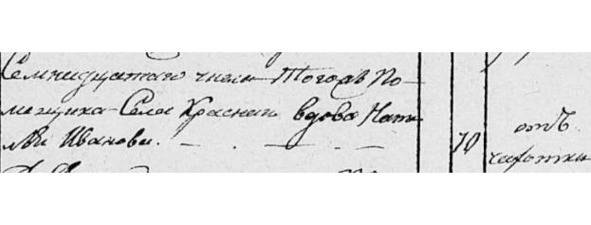 Семнидцатаго числа Тогожъ По-
мещика Села Краснаго вдова Ната-
лья Иванова.
70
отъ
чахотки